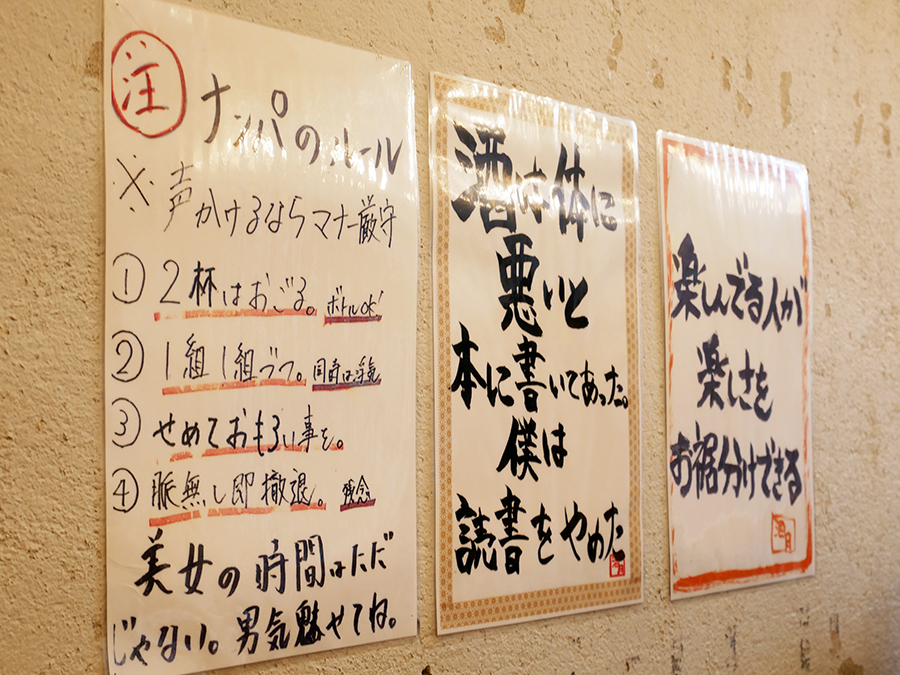 注
ナンパのルール
※声かけるならマナー厳守
① 2杯はおごる。ボトルOK!
② 1組1組づつ。同毒は浮気
③ せめておもろい事を。
④ 脈無し即撤退。残念
美女の時間はただ
じゃない。男気魅せてね。
酒は体に
悪いと
本に書いてあった。
僕は
読書をやめた
楽しんでる人が
楽しさを
お裾分けできる
酒月